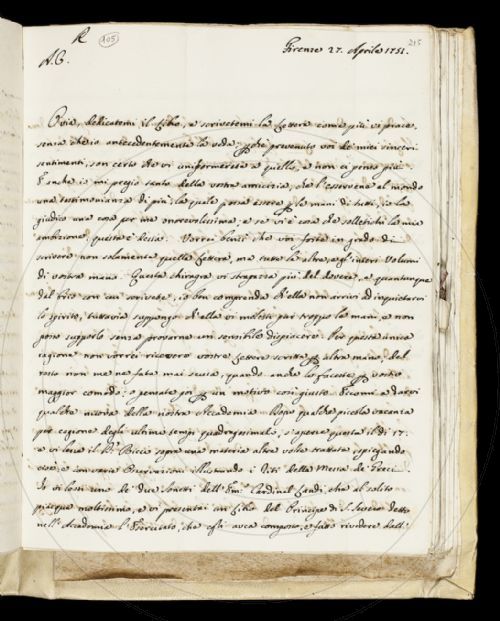 R
105
215
A.C.
Firenze 27. Aprile 1751.
Ovia, dedicatemi il Libro, e scrivetemi la Lettera come più vi piace,
senza ch'io antecedentemente la veda; prevenuto voi de' miei sinceri
sentimenti, son certo che vi uniformerete a quelli, e non ci penso più.
E anche io mi pregio tanto della vostra amicizia, che l'esservene al mondo
una testimonianza di più, la quale possa essere le mani di tutti, io la
giudico una cosa per me onorevolissima, e se vi è cosa che solletichi la mia
ambizione, questa è dessa. Vorrei bensì che voi foste in grado di
scrivere non solamente quella Lettera, ma tutte le altre, e gl'interi Volumi
di vostra mano. Questa chiragra vi strapazza più del dovere, e quantunque
dal frio son con scrivete, io ben comprenda ch'ella non arrivi ad inquietarvi
lo spirito, tuttavia suppongo ch'ella vi molesti pur troppo la mano, e non
posso supporlo senza provarne un sensibile dispiacere. Per questa unica
ragione non vorrei ricevere vostre Lettere scritte altra mano; del
resto non me ne fate mai scusa, quando anche lo faceste vostro
maggior comodo; e pensate poi un motivo così giusto. Eccomi a darvi
qualche nuova della nostra Accademia. Dopo qualche piccola vacanza
per cagione degli ultimi tempi quadragesimali, s'aperse questa il dì 17:
e vi lesse il P. Biccio sopra una materia altre volte trattata spiegando
cioè, e con varie Osservazioni illustrando i Riti della Messa de' Greci.
Io vi lessi uno de' due Sonetti dell' Em. Cardinal Landi, che al solito
piacque moltissimo, e vi presentai un Libro del Principe di S. Severo detto
nell'Accademia l'Esercitato, che egli avea composto, e fatto rivedere dall'